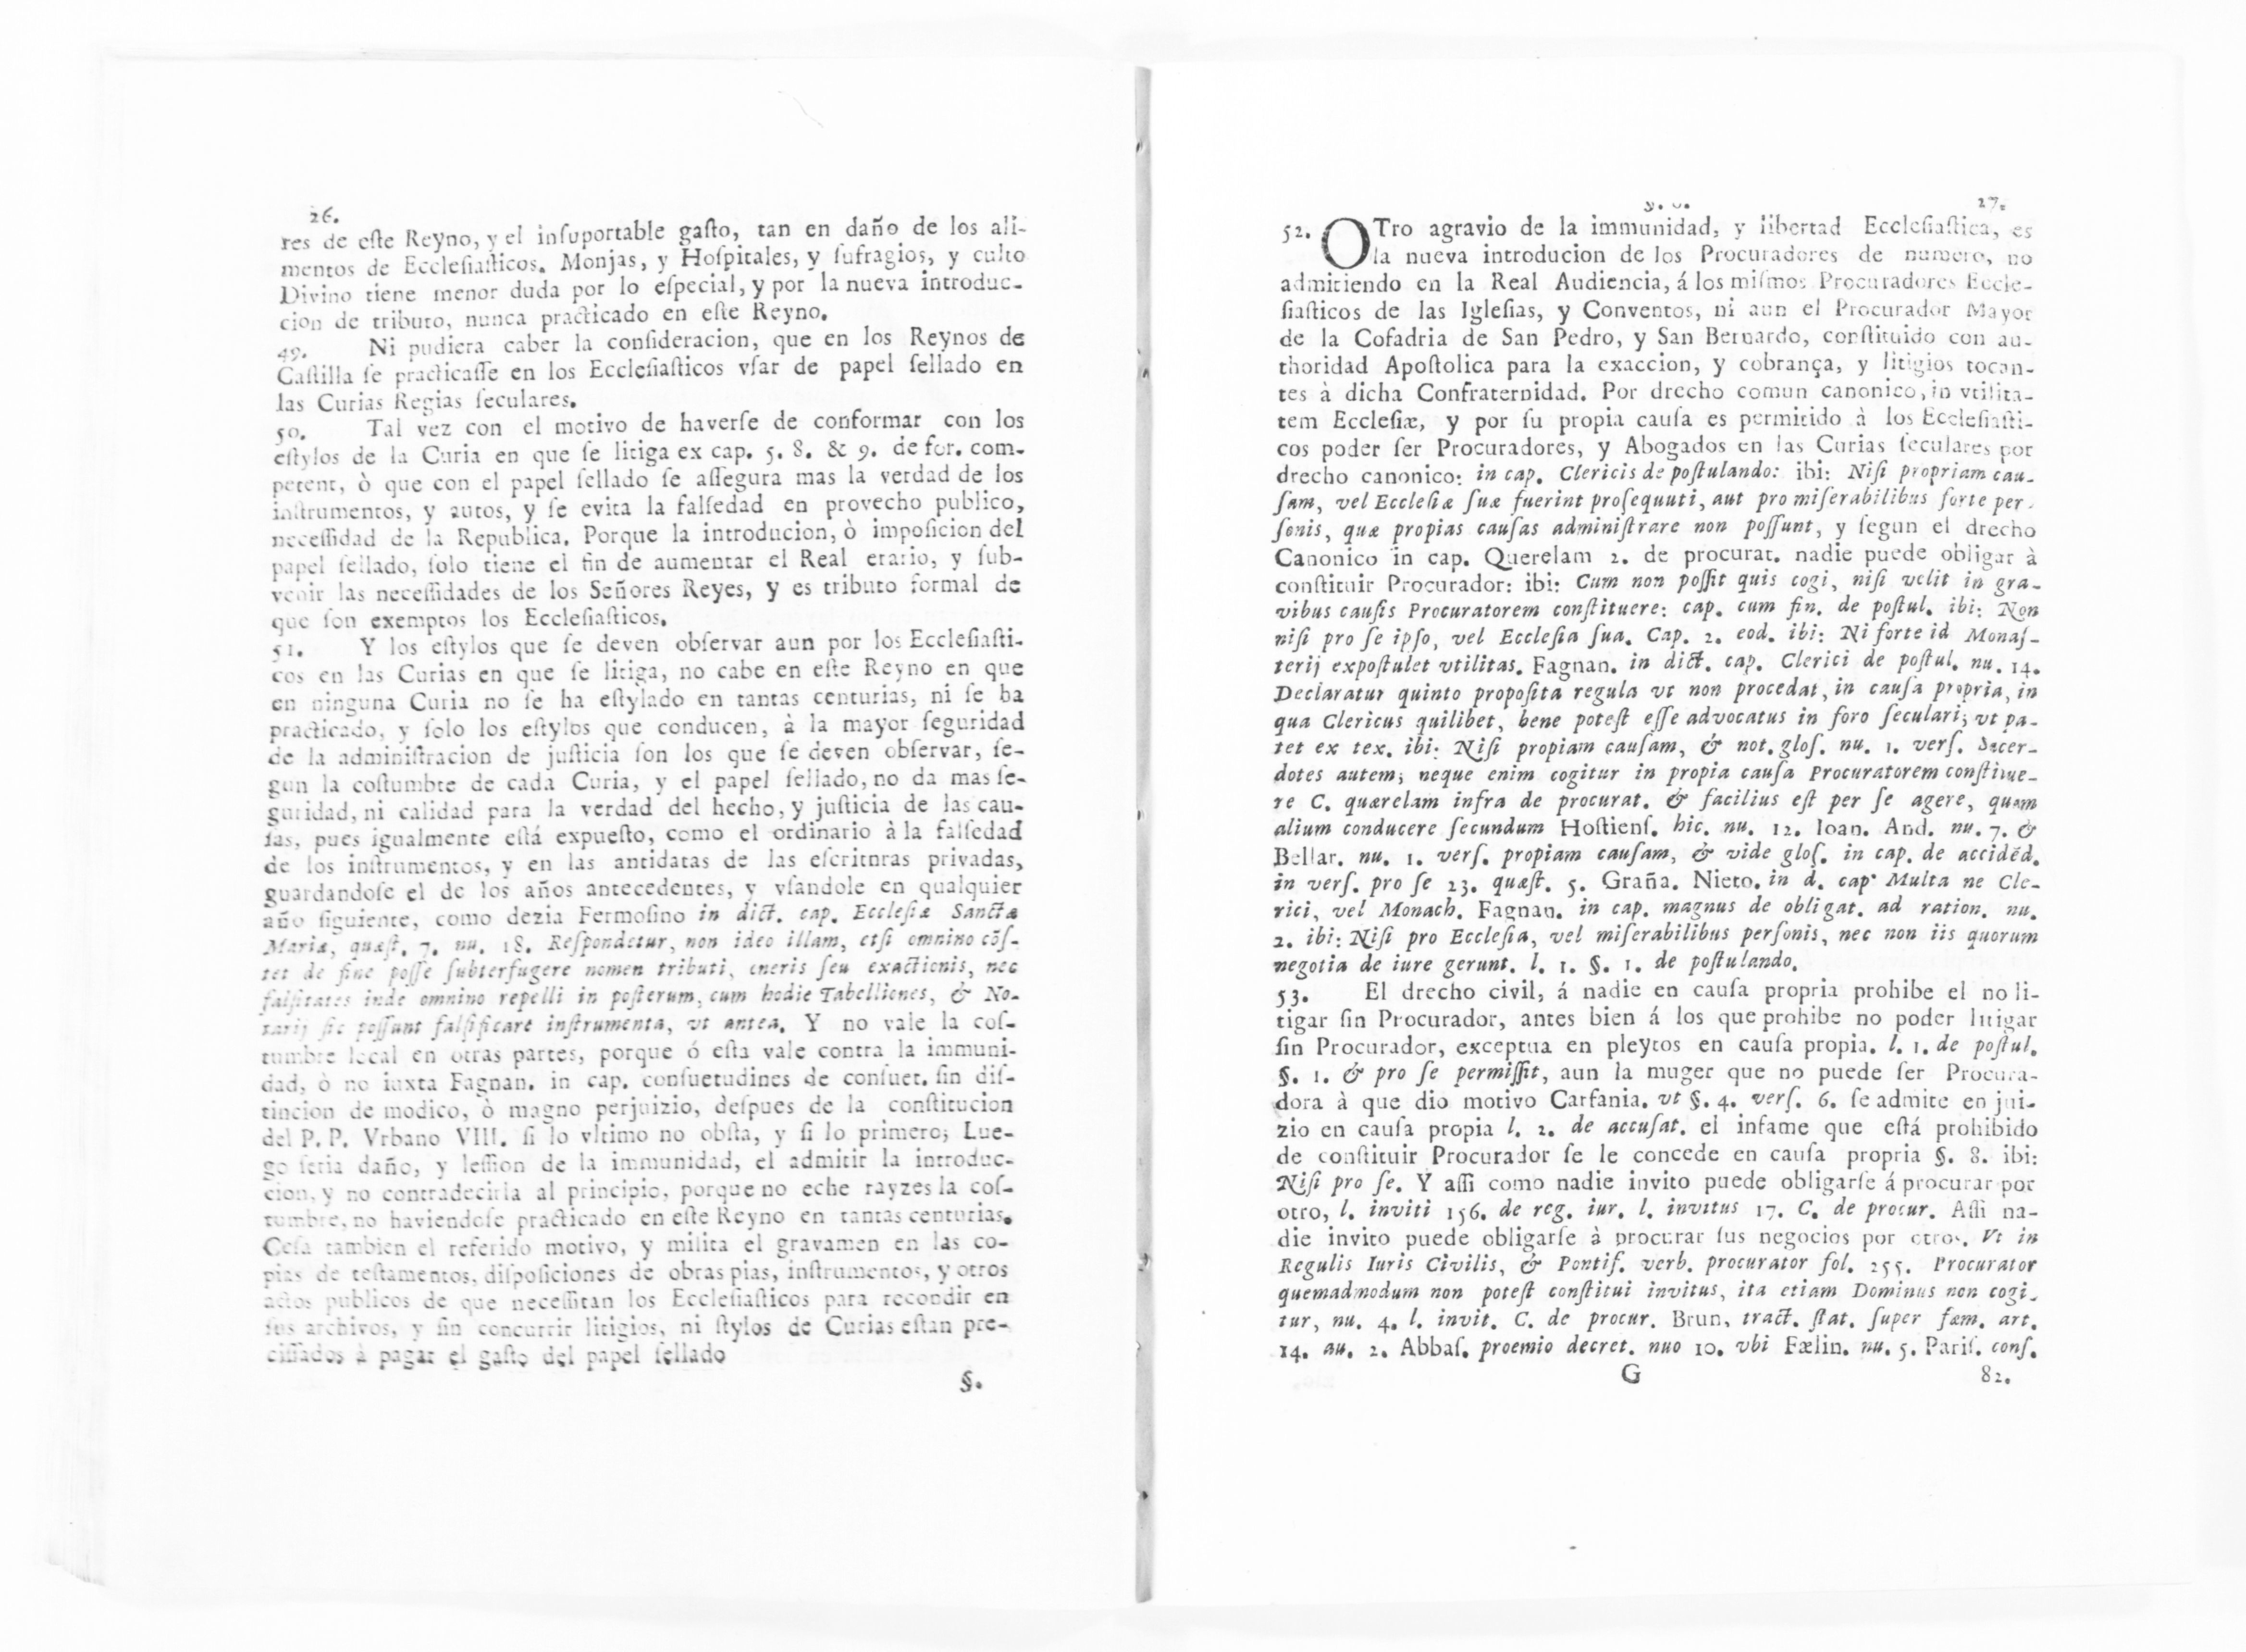 26.
res de este Reyno, y el insuportable gasto, tan en daño de los ali-
mentos de Ecclesiasticos. Monjas, y Hospitales, y sufragios, y culto
Divino tiene menor duda por lo especial, y por la nueva introduc-
cion de tributo, nunca practicado en este Reyno.
49. Ni pudiera caber la consideracion, que en los Reynos de
Castilla se practicasse en los Ecclesiasticos vsar de papel sellado en
las Curias Regias seculares.
50. Tal vez con el motivo de haverse de conformar con los
estylos de la Curia en que se litiga ex cap. 5. 8. & 9. de for. com-
petent, ò que con el papel sellado se assegura mas la verdad de los
instrumentos, y autos, y se evita la falsedad en provecho publico,
necessidad de la Republica. Porque la introducion, ò imposicion del
papel sellado, solo tiene el fin de aumentar el Real erario, y sub-
venir las necessidades de los Señores Reyes, y es tributo formal de
que son exemptos los Ecclesiasticos.
51. Y los estylos que se deven observar aun por los Ecclesiasti-
cos en las Curias en que se litiga, no cabe en este Reyno en que
en ninguna Curia no se ha estylado en tantas centurias, ni se ha
practicado, y solo los estylos que conducen, à la mayor seguridad
de la administracion de justicia son los que se deven observar, se-
gun la costumbre de cada Curia, y el papel sellado, no da mas se-
guridad, ni calidad para la verdad del hecho, y justicia de las cau-
sas, pues igualmente está expuesto, como el ordinario à la falsedad
de los instrumentos, y en las antidatas de las escrituras privadas,
guardandose el de los años antecedentes, y vsandole en qualquier
año siguiente, como dezia Fermosino in dict. cap. Ecclesiæ Sanctæ
Mariæ, quæst. 7. nu. 18. Respondetur, non ideo illam, etsi omnino cõs-
tet de fine posse subterfugere nomen tributi, oneris seu exactionis, nec
falsitates inde omnino repelli in posterum, cum hodie Tabelliones, & No-
tarij sic possunt falsificare instrumenta, vt antea. Y no vale la cos-
tumbre local en otras partes, porque ó esta vale contra la immuni-
dad, ò no iuxta Fagnan. in cap. consuetudines de consuet. sin dis-
tincion de modico, ò magno perjuizio, despues de la constitucion
del P. P. Vrbano VIII. si lo vltimo no obsta, y si lo primero; Lue-
go seria daño, y lession de la immunidad, el admitir la introduc-
cion, y no contradecirla al principio, porque no eche rayzes la cos-
tumbre, no haviendose practicado en este Reyno en tantas centurias.
Cesa tambien el referido motivo, y milita el gravamen en las co-
pias de testamentos, disposiciones de obras pias, instrumentos, y otros
actos publicos de que necessitan los Ecclesiasticos para recondir en
sus archivos, y sin concurrir litigios, ni stylos de Curias estan pre-
cissados à pagar el gasto del papel sellado
§.
27.
52. OTro agravio de la immunidad, y libertad Ecclesiastica, es
la nueva introducion de los Procuradores de numero, no
admitiendo en la Real Audiencia, á los mismos Procuradores Eccle-
siasticos de las Iglesias, y Conventos, ni aun el Procurador Mayor
de la Cofadria de San Pedro, y San Bernardo, constituido con au-
thoridad Apostolica para la exaccion, y cobrança, y litigios tocan-
tes à dicha Confraternidad. Por drecho comun canonico, in vtilita-
tem Ecclesiæ, y por su propia causa es permitido à los Ecclesiasti-
cos poder ser Procuradores, y Abogados en las Curias seculares por
drecho canonico: in cap. Clericis de postulando: ibi: Nisi propriam cau-
sam, vel Ecclesiæ suæ fuerint prosequuti, aut pro miserabilibus forte per-
sonis, quæ propias causas administrare non possunt, y segun el drecho
Canonico in cap. Querelam 2. de procurat. nadie puede obligar à
constituir Procurador: ibi: Cum non possit quis cogi, nisi velit in gra-
vibus causis Procuratorem constituere: cap. cum fin. de postul. ibi: Non
nisi pro se ipso, vel Ecclesia sua. Cap. 2. eod. ibi: Ni forte id Monas-
terij expostulet vtilitas. Fagnan. in dict. cap. Clerici de postul. nu. 14.
Declaratur quinto proposita regula vt non procedat, in causa propria, in
qua Clericus quilibet, bene potest esse advocatus in foro seculari; vt pa-
tet ex tex. ibi: Nisi propiam causam, & not. glos. nu. 1. vers. Sacer-
dotes autem; neque enim cogitur in propia causa Procuratorem constitue-
re C. quærelam infra de procurat. & facilius est per se agere, quam
alium conducere secundum Hostiens. hic. nu. 12. Ioan. And. nu. 7. &
Bellar. nu. 1. vers. propiam causam, & vide glos. in cap. de accidẽd.
in vers. pro se 23. quæst. 5. Graña. Nieto. in d. cap. Multa ne Cle-
rici, vel Monach. Fagnan. in cap. magnus de obligat. ad ration. nu.
2. ibi: Nisi pro Ecclesia, vel miserabilibus personis, nec non iis quorum
negotia de iure gerunt. l. 1. §. 1. de postulando.
53. El drecho civil, á nadie en causa propria prohibe el no li-
tigar sin Procurador, antes bien á los que prohibe no poder litigar
sin Procurador, exceptua en pleytos en causa propia. l. 1. de postul.
§. 1. & pro se permissit, aun la muger que no puede ser Procura-
dora à que dio motivo Carfania. vt §. 4. vers. 6. se admite en jui-
zio en causa propia l. 2. de accusat. el infame que está prohibido
de constituir Procurador se le concede en causa propria §. 8. ibi:
Nisi pro se. Y assi como nadie invito puede obligarse á procurar por
otro, l. inviti 156. de reg. iur. l. invitus 17. C. de procur. Assi na-
die invito puede obligarse à procurar sus negocios por otros. Vt in
Regulis Iuris Civilis, & Pontif. verb. procurator fol. 255. Procurator
quemadmodum non potest constitui invitus, ita etiam Dominus non cogi-
tur, nu. 4. l. invit. C. de procur. Brun. tract. stat. super fæm. art.
14. au. 2. Abbas. proemio decret. nuo 10. vbi Fælin. nu. 5. Paris. cons.
G 82.